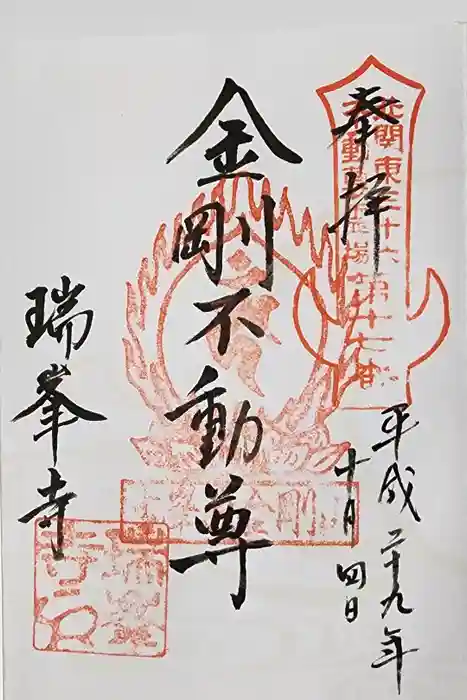 奉拝
北関東三十六
不動尊霊場
第十七番
平成二十九年
十月四日
金剛不動尊
瑞峯寺